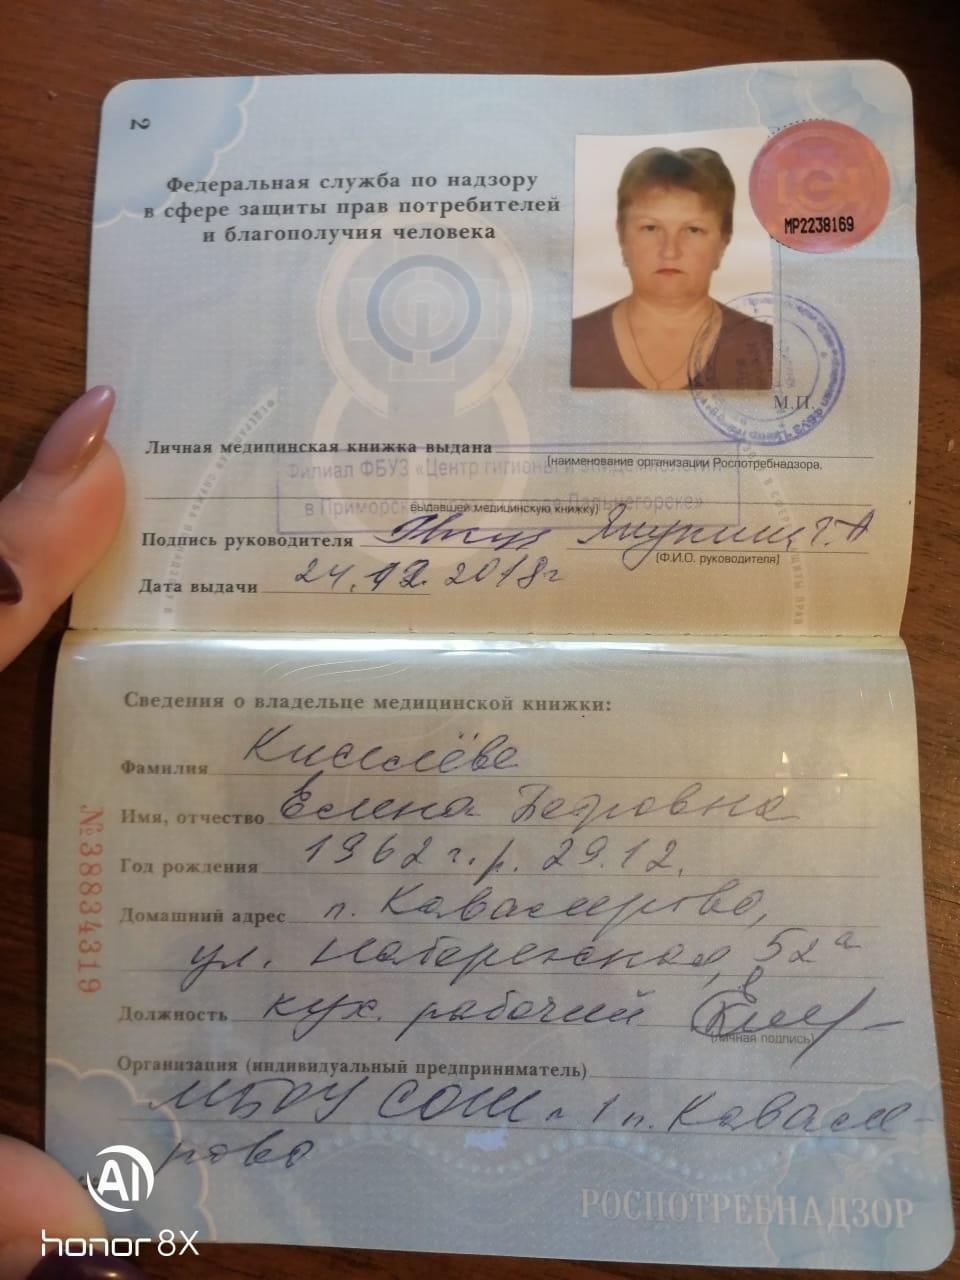 2
Федеральная служба по надзору
в сфере защиты прав потребителей
и благополучия человека
МР2238169
М.П.
Личная медицинская книжка выдана
(наименование организации Роспотребнадзора,
Филиал ФБУЗ «Центр гигиены и эпидемиологии
выдавшей медицинскую книжку)
в Приморском крае в городе Дальнегорске»
Подпись руководителя
(Ф.И.О. руководителя)
Дата выдачи 24.12.2018г
Сведения о владельце медицинской книжки:
Фамилия Киселёва
Имя, отчество Елена Петровна
Год рождения 1962 г.р. 29.12.
Домашний адрес п. Кавалерово,
ул. Набережная, 52а
Должность кух. рабочий
(личная подпись)
Организация (индивидуальный предприниматель)
МБОУ СОШ №1 п. Кавале-
рово
№38834319
РОСПОТРЕБНАДЗОР
AI
honor 8X